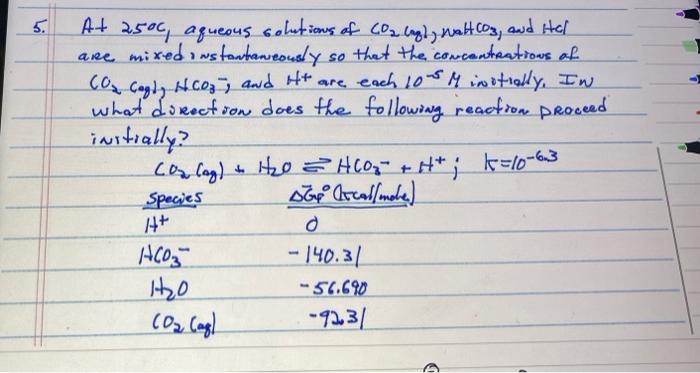 5. At 25°C, aqueous solutions of CO₂ (aq), NaHCO₃, and HCl
are mixed instantaneously so that the concentrations of
CO₂ (aq), HCO₃⁻, and H+ are each 10⁻⁵ M initially. In
what direction does the following reaction proceed
initially?
CO₂ (aq) + H₂O ⇌ HCO₃⁻ + H+; K=10⁻⁶·³
Species ΔGf° (kcal/mole)
H+ 0
HCO₃⁻ -140.31
H₂O -56.690
CO₂ (aq) -92.31